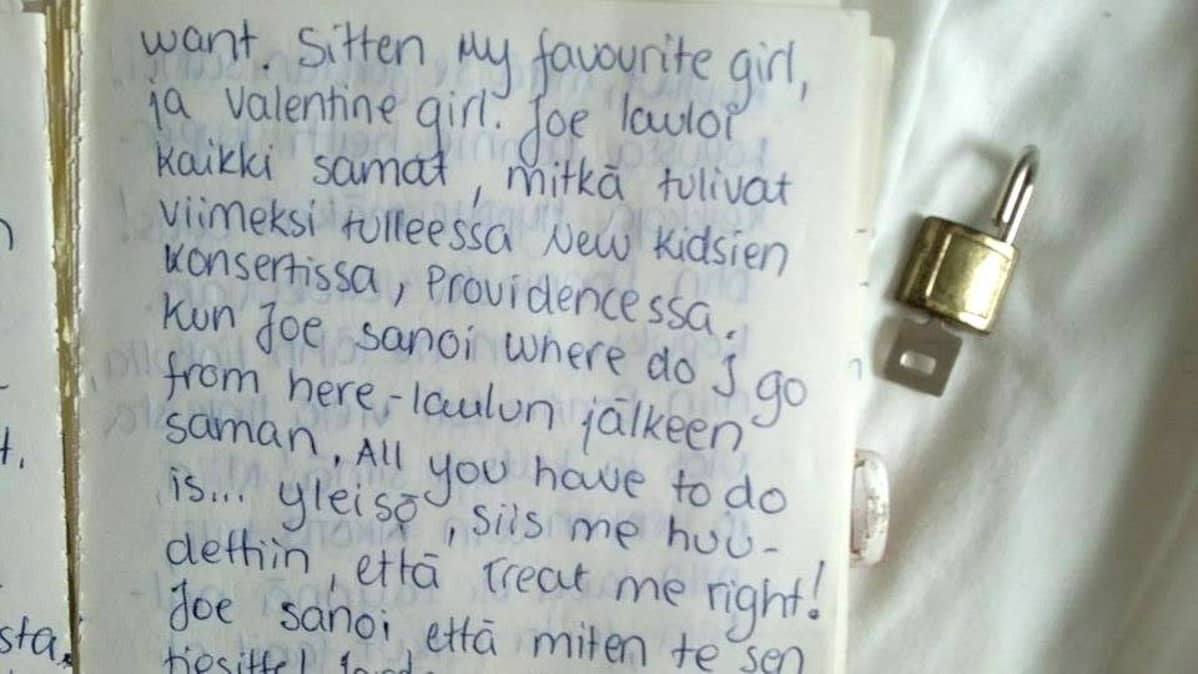 want. Sitten My favourite girl,
ja valentine girl. Joe lauloi
kaikki samat, mitkä tulivat
viimeksi tulleessa New Kidsien
konsertissa, Providencessa.
Kun Joe sanoi where do I go
from here,-laulun jälkeen
saman, All you have to do
is... yleisö, siis me huu-
dettiin, että Treat me right!
Joe sanoi, että miten te sen
sta.